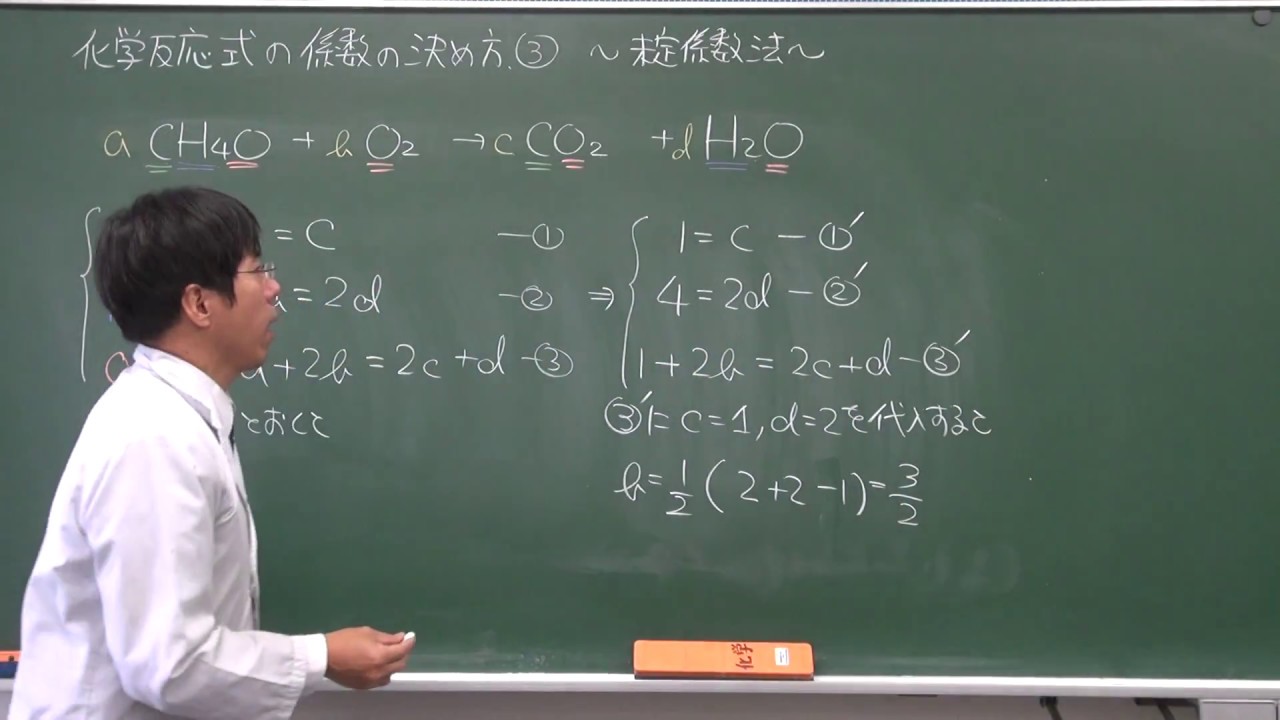 化学反応式の係数の決め方.③ ～未定係数法～
a CH4O + b O2 → c CO2 + d H2O
= c －①
=2d －②
+2b = 2c +d －③
とおくと
⇒
1= c － ①′
4=2d－②′
1+2b = 2c+d－③′
③′に c=1, d=2を代入すると
b=1/2(2+2-1)=3/2
化学